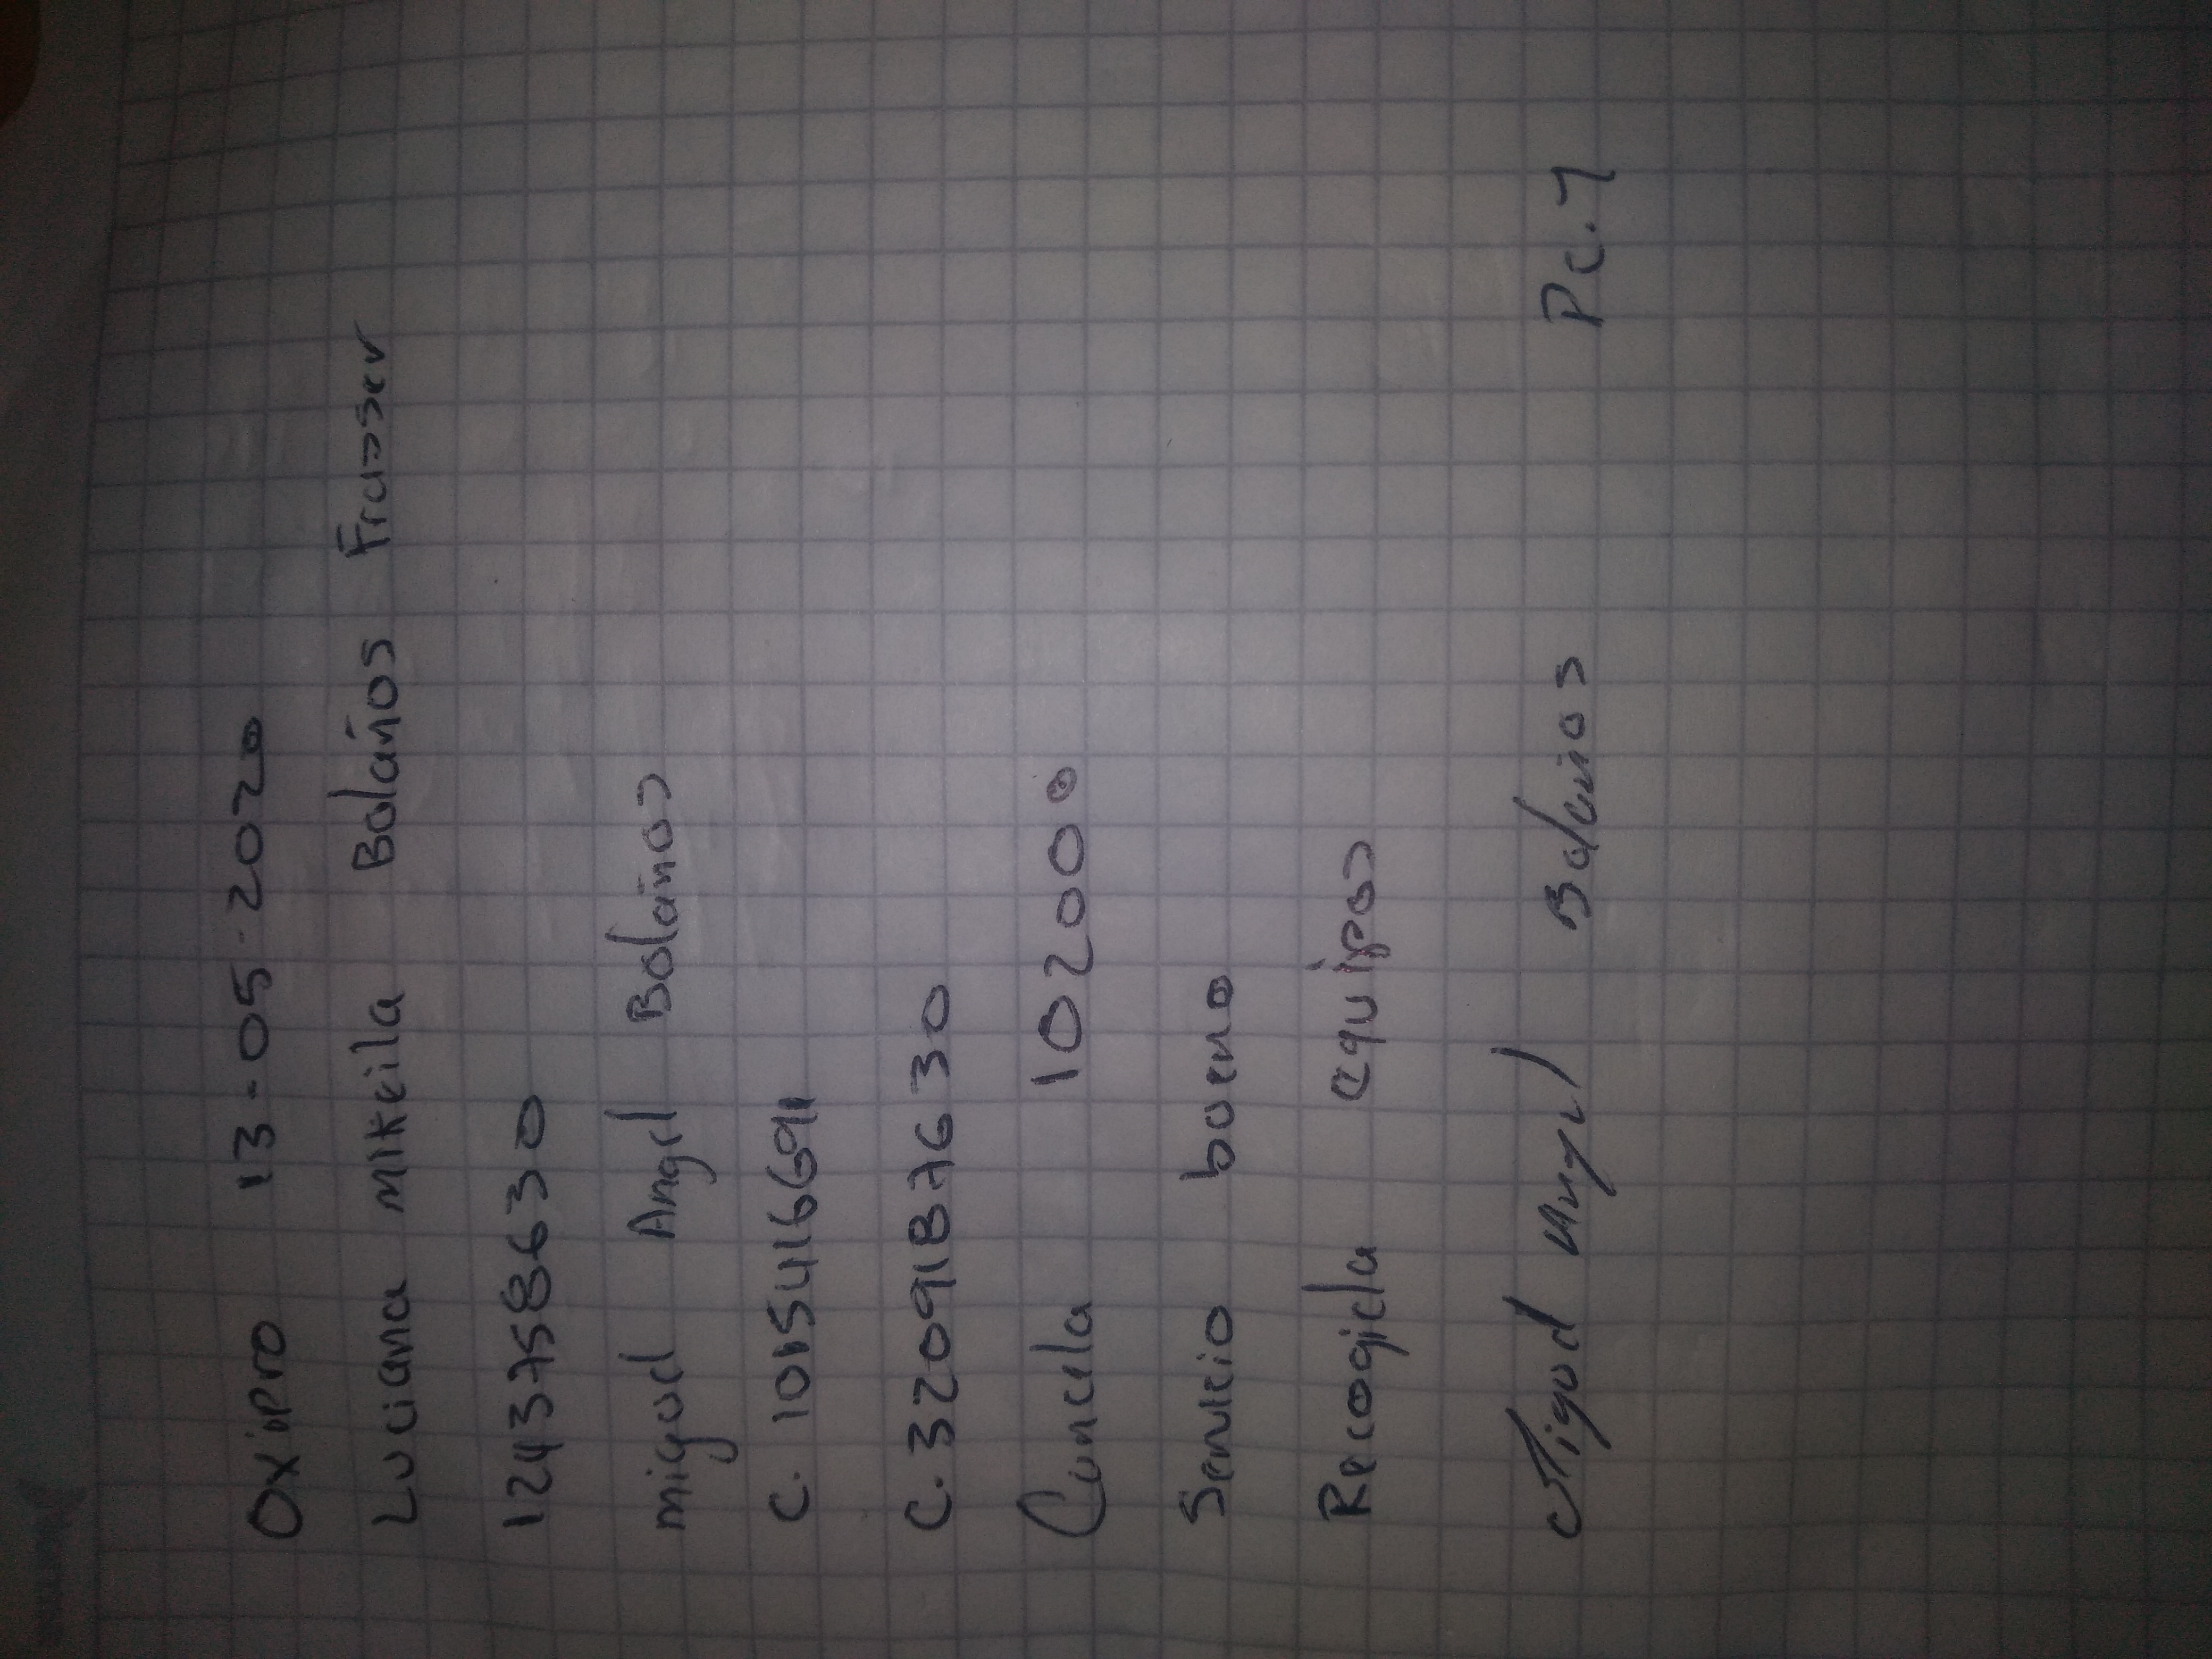 Oxipro 13-05-2020
Luciana mikeila Bolaños Frasser
1243758630
miguel Angel Bolaños
C. 1015416691
C. 3209187630
Cancela 102000
Servicio bueno
Recogida equipos
Miguel Angel Bolaños P.C.1